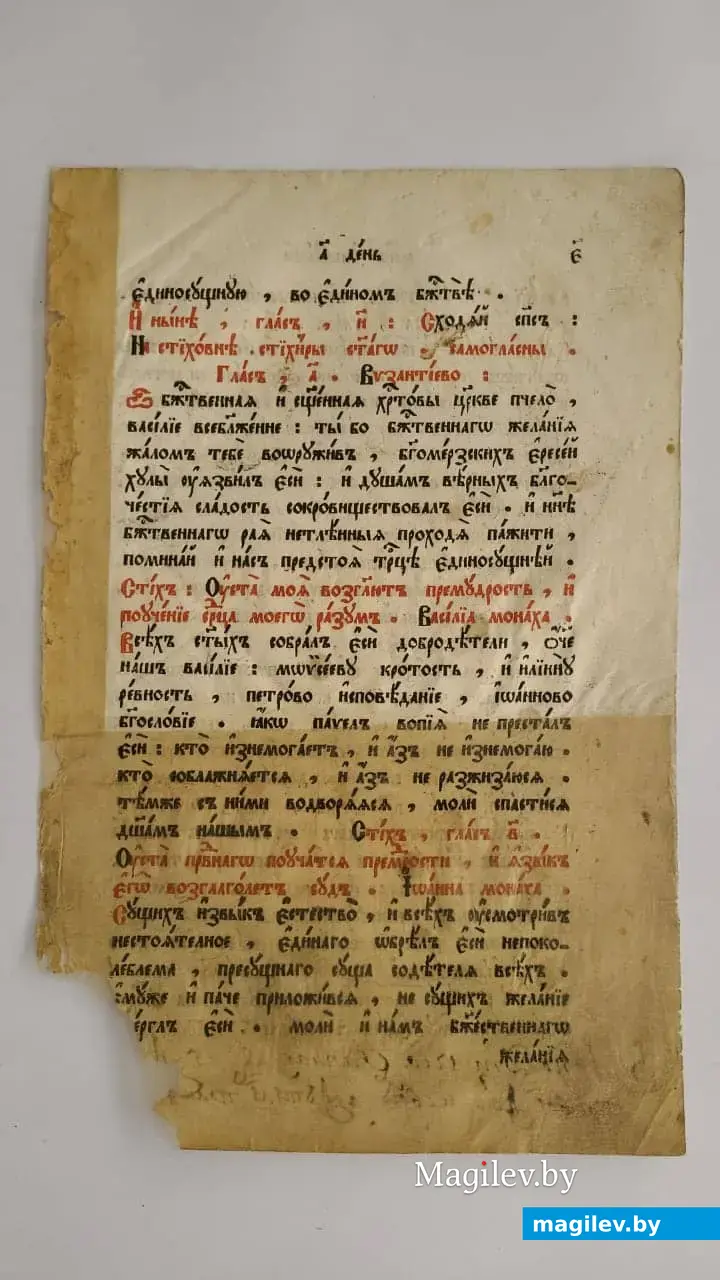 а҃ де́нь е҃
є҆диносꙋ́щнꙋю , во є҆ди́номъ бж҃твѣ̀ .
И҆ ны́нѣ , гла́съ , и҃ : Сходѧ́й сп҃съ :
На стїхо́внѣ стїхи̑ры ст҃а́гѡ самогла́сны .
Гла́съ , а҃ . Вѵзанті́ево :
бж҃твеннаѧ и҆ сщ҃е́ннаѧ хрт҃о́вы цр҃кве пчело̀ ,
васі́лїе всебл҃же́нне : ты́ бо бж҃твеннагѡ жела́нїѧ
жа́ломъ тебѐ воѡрꙋжи́въ , бг҃оме́рзскихъ є҆ресе́й
хꙋлы̀ оу҆ѧзви́лъ є҆сѝ : и҆ дꙋша́мъ вѣ́рныхъ бл҃го-
че́стїѧ сла́дость сокро́виществовалъ є҆сѝ . и҆ нн҃ѣ
бж҃твеннагѡ раѧ̀ нетлѣ́нныѧ проходѧ̀ па́жити ,
помина́й и҆ на́съ предстоѧ̀ тр҃цѣ є҆диносꙋ́щнѣй .
Сті́хъ : Оу҆ста̀ моѧ̀ возгл҃ютъ премꙋ́дрость , и҆
поꙋче́нїе ср҃ца моегѡ̀ ра́зꙋмъ . Васі́лїа мона́ха .
Всѣ́хъ ст҃ы́хъ собра́лъ є҆сѝ добродѣ́тели , ѻ҆́ч҃е
на́шъ васі́лїе : мѡѷсе́евꙋ кро́тость , и҆ и҆лїинꙋ̀
ре́вность , петро́во и҆сповѣ́данїе , і҆ѡа́нново
бг҃осло́вїе . ꙗ҆́кѡ па́ѵелъ вопїѧ̀ не преста́лъ
є҆сѝ : кто̀ и҆знемога́етъ , и҆ а҆́зъ не и҆знемога́ю .
кто̀ соблажнѧ́етсѧ , и҆ а҆́зъ не разжиза́юсѧ .
тѣ́мже съ ни́ми водворѧ́ѧсѧ , молѝ спасти́сѧ
дш҃а́мъ на́шымъ . Сті́хъ , гла́съ в҃ .
Оу҆ста̀ пра́внагѡ поꙋча́тсѧ премⷣрости , и҆ ѧ҆зы́къ
є҆гѡ̀ возглаго́летъ сꙋ́дъ . І҆ѡа́нна мона́ха .
Сꙋ́щихъ и҆звы́къ є҆стество̀ , и҆ всѣ́хъ оу҆смотри́въ
нестоѧ́телное , є҆ди́наго ѡ҆брѣ́лъ є҆сѝ непоко-
ле́блема , пресꙋ́щнаго сꙋ́ща содѣ́телѧ всѣ́хъ .
є҆мꙋ́же и҆ па́че приложи́всѧ , не сꙋ́щихъ жела́нїе
є҆сѝ . молѝ и҆ на́мъ бж҃е́ственнагѡ
жела́нїѧ
Magilev.by
magilev.by